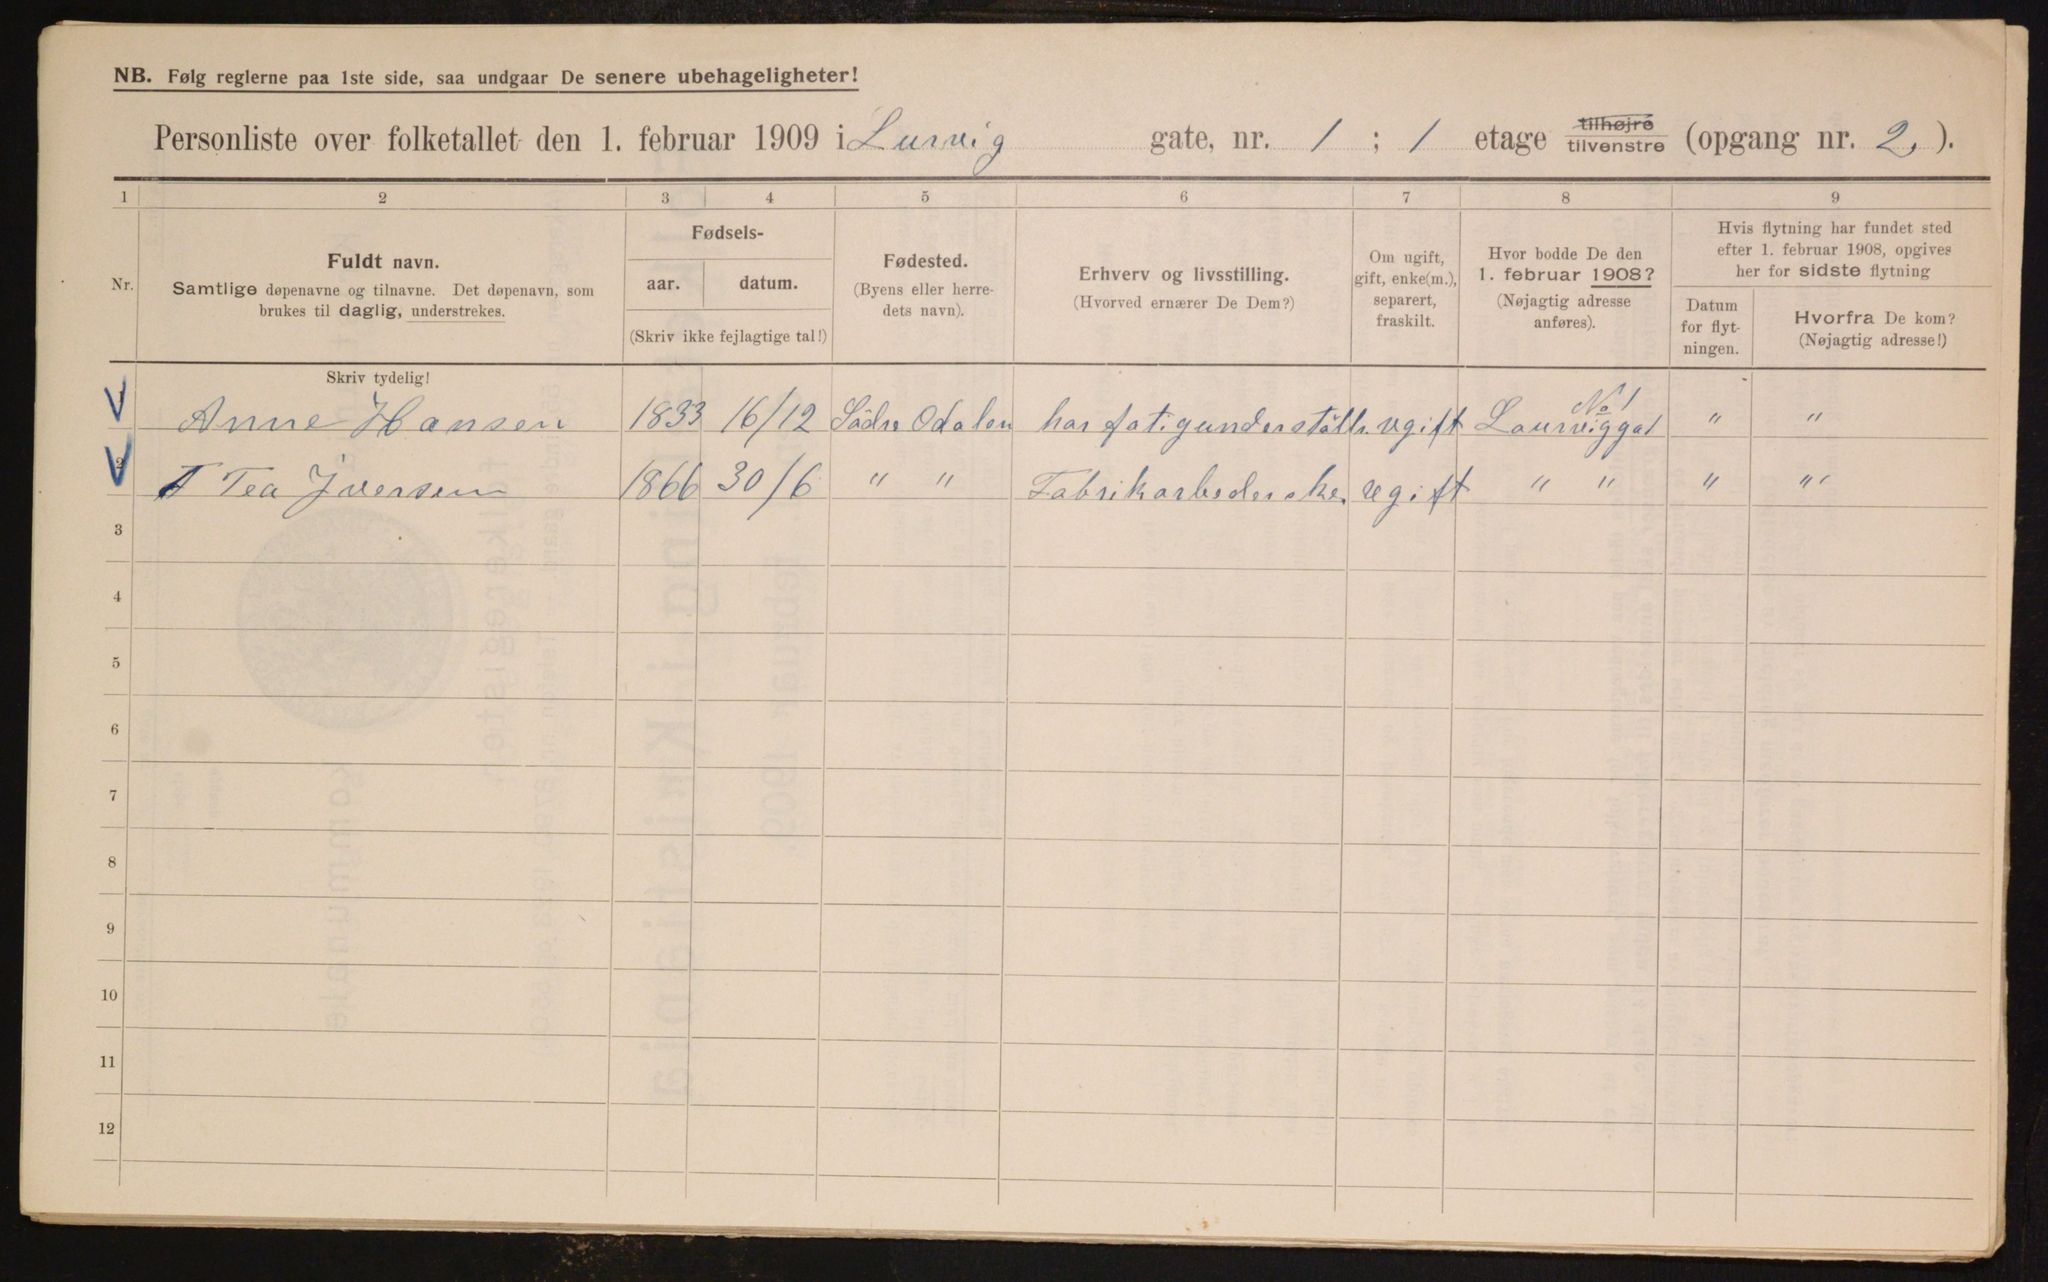 NB. Følg reglerne paa 1ste side, saa undgaar De senere ubehageligheter!
Personliste over folketallet den 1. februar 1909 i Lurvig gate, nr. 1 ; 1 etage tilhøjre tilvenstre (opgang nr. 2.).
1 2 3 4 5 6 7 8 9
Nr.
Fuldt navn.
Samtlige døpenavne og tilnavne. Det døpenavn, som
brukes til daglig, understrekes.
Fødsels-
aar. datum.
(Skriv ikke fejlagtige tal!)
Fødested.
(Byens eller herre-
dets navn).
Erhverv og livsstilling.
(Hvorved ernærer De Dem?)
Om ugift,
gift, enke(m.),
separert,
fraskilt.
Hvor bodde De den
1. februar 1908?
(Nøjagtig adresse
anføres).
Hvis flytning har fundet sted
efter 1. februar 1908, opgives
her for sidste flytning
Datum
for flyt-
ningen.
Hvorfra De kom?
(Nøjagtig adresse!)
Skriv tydelig!
1 Anne Hansen 1833 16/12 Södre Odalen har fatigunderstött. ugift Laurviggat No 1 " "
2 Tea Iversen 1866 30/6 " " Fabrikarbederske. ugift " " " "
3
4
5
6
7
8
9
10
11
12